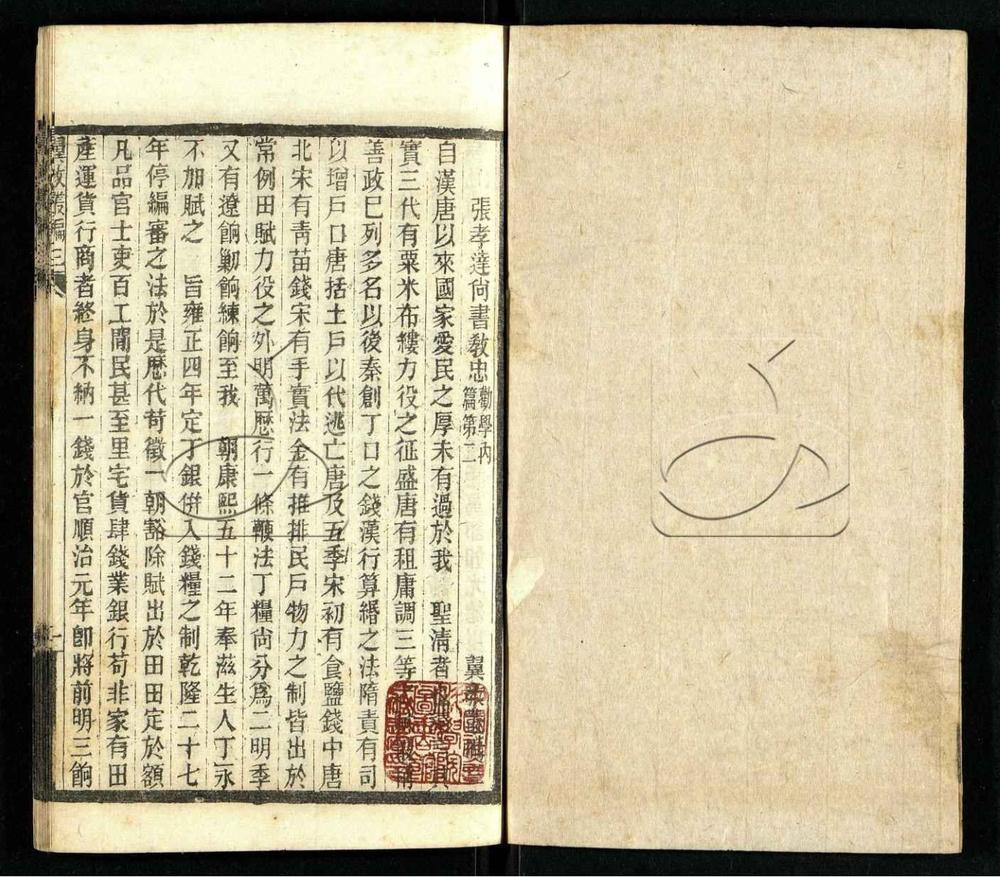 張孝達尚書教忠勸學內篇第二 翼
自漢唐以來國家愛民之厚未有過於我 聖清者
實三代有粟米布縷力役之征盛唐有租庸調三等
善政已列多名以後秦創丁口之錢漢行算緡之法隋責有司
以增戶口唐括土戶以代逃亡唐及五季宋初有食鹽錢中唐
北宋有青苗錢宋有手實法金有推排民戶物力之制皆出於
常例田賦力役之外明萬歷行一條鞭法丁糧尚分爲二明季
又有遼餉勦餉練餉至我 朝康熙五十二年奉滋生人丁永
不加賦之 旨雍正四年定丁銀倂入錢糧之制乾隆二十七
年停編審之法於是歷代苛徵一朝豁除賦出於田田定於額
凡品官士吏百工閒民甚至里宅貨肆錢業銀行苟非家有田
產運貨行商者終身不納一錢於官順治元年卽將前明三餉
翼教叢編 三 一